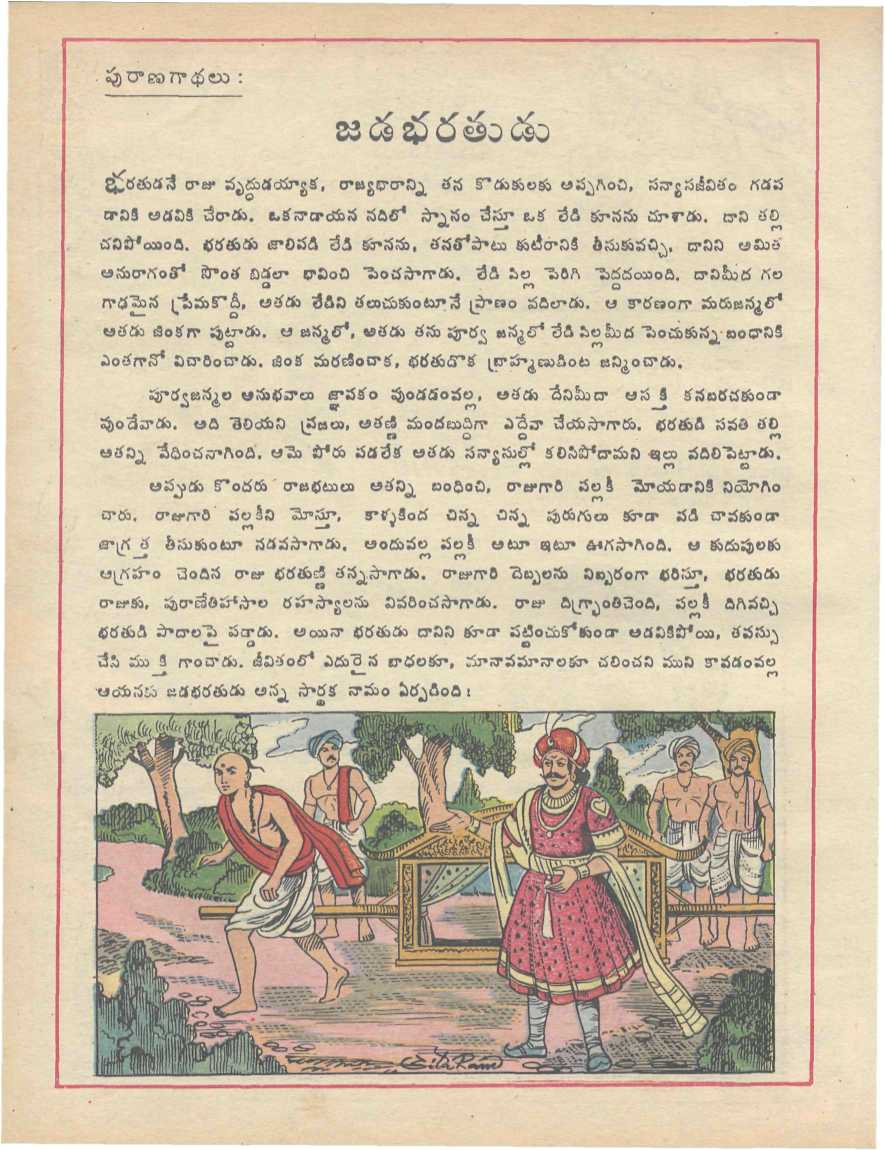 పురాణగాథలు :
జడభరతుడు
భరతుడనే రాజు వృద్ధుడయ్యాక, రాజ్యభారాన్ని తన కొడుకులకు అప్పగించి, సన్యాసజీవితం గడప
డానికి అడవికి చేరాడు. ఒకనాడాయన నదిలో స్నానం చేస్తూ ఒక లేడి కూనను చూశాడు. దాని తల్లి
చనిపోయింది. భరతుడు జాలిపడి లేడి కూనను, తనతోపాటు కుటీరానికి తీసుకువచ్చి, దానిని అమిత
అనురాగంతో సొంత బిడ్డలా భావించి పెంచసాగాడు. లేడి పిల్ల పెరిగి పెద్దదయింది. దానిమీద గల
గాఢమైన ప్రేమకొద్దీ, అతడు లేడిని తలుచుకుంటూనే ప్రాణం వదిలాడు. ఆ కారణంగా మరుజన్మలో
అతడు జింకగా పుట్టాడు. ఆ జన్మలో, అతడు తను పూర్వ జన్మలో లేడి పిల్లమీద పెంచుకున్న బంధానికి
ఎంతగానో విచారించాడు. జింక మరణించాక, భరతుడొక బ్రాహ్మణుడింట జన్మించాడు.
పూర్వజన్మల అనుభవాలు జ్ఞాపకం వుండడంవల్ల, అతడు దేనిమీదా ఆసక్తి కనబరచకుండా
వుండేవాడు. అది తెలియని ప్రజలు, అతణ్ణి మందబుద్ధిగా ఎద్దేవా చేయసాగారు. భరతుడి సవతి తల్లి
అతన్ని వేధించనాగింది. ఆమె పోరు పడలేక అతడు సన్యాసుల్లో కలిసిపోదామని ఇల్లు వదిలిపెట్టాడు.
అప్పుడు కొందరు రాజభటులు అతన్ని బంధించి, రాజుగారి పల్లకీ మోయడానికి నియోగిం
చారు. రాజుగారి పల్లకీని మోస్తూ, కాళ్ళకింద చిన్న చిన్న పురుగులు కూడా పడి చావకుండా
జాగ్రత్త తీసుకుంటూ నడవసాగాడు. అందువల్ల పల్లకీ అటూ ఇటూ ఊగసాగింది. ఆ కుదుపులకు
ఆగ్రహం చెందిన రాజు భరతుణ్ణి తన్నసాగాడు. రాజుగారి దెబ్బలను నిబ్బరంగా భరిస్తూ, భరతుడు
రాజుకు, పురాణేతిహాసాల రహస్యాలను వివరించసాగాడు. రాజు దిగ్భ్రాంతిచెంది, పల్లకీ దిగివచ్చి
భరతుడి పాదాలపై పడ్డాడు. అయినా భరతుడు దానిని కూడా పట్టించుకోకుండా అడవికిపోయి, తపస్సు
చేసి ముక్తి గాంచాడు. జీవితంలో ఎదురైన బాధలకూ, మానావమానాలకూ చలించని ముని కావడంవల్ల
ఆయనకు జడభరతుడు అన్న సార్థక నామం ఏర్పడింది:
Sita Ram